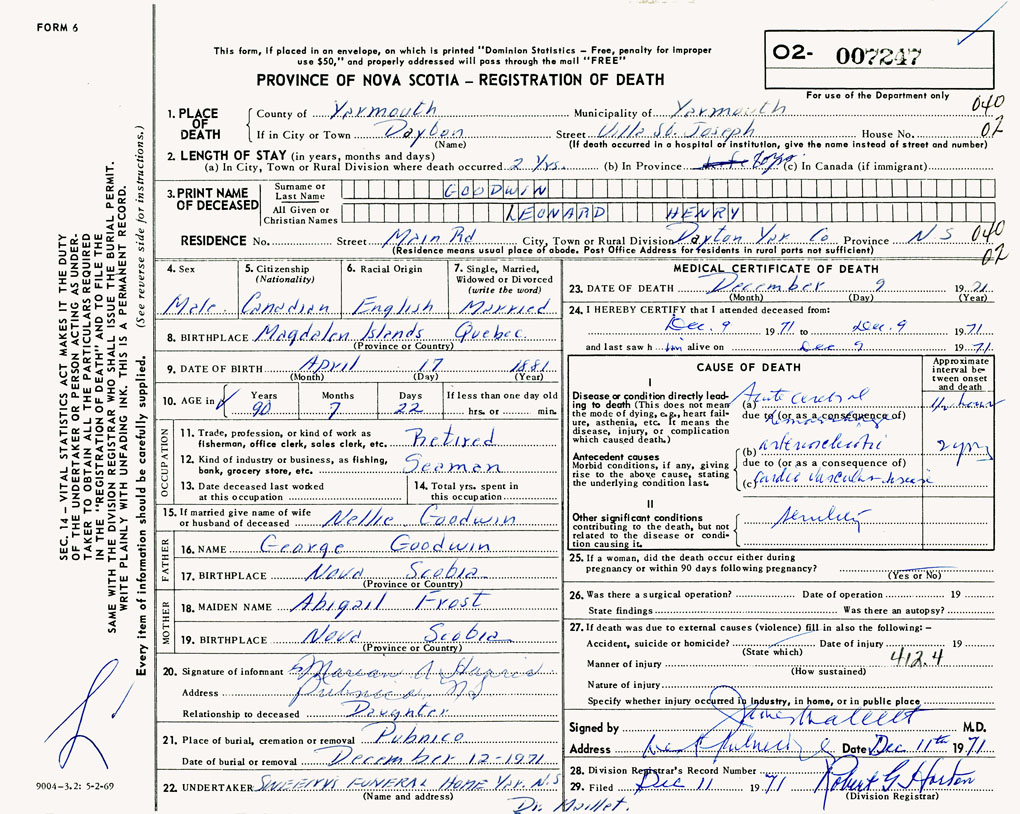 FORM 6
This form, if placed in an envelope, on which is printed "Dominion Statistics – Free, penalty for improper
use $50," and properly addressed will pass through the mail "FREE"
PROVINCE OF NOVA SCOTIA – REGISTRATION OF DEATH
O2- 007247
For use of the Department only
040
02
1. PLACE OF DEATH
County of Yarmouth Municipality of Yarmouth
If in City or Town Dayton Street Villa St. Joseph House No.
(Name) (If death occurred in a hospital or institution, give the name instead of street and number)
2. LENGTH OF STAY (in years, months and days)
(a) In City, Town or Rural Division where death occurred 2 Yrs. (b) In Province (c) In Canada (if immigrant)
3. PRINT NAME OF DECEASED
Surname or Last Name GOODWIN
All Given or Christian Names LEONARD HENRY
RESIDENCE No. Street Main Rd City, Town or Rural Division Dayton Yar Co Province N S
040
02
(Residence means usual place of abode. Post Office Address for residents in rural parts not sufficient)
4. Sex
Male
5. Citizenship (Nationality)
Canadian
6. Racial Origin
English
7. Single, Married, Widowed or Divorced (write the word)
Married
8. BIRTHPLACE Magdalen Islands Quebec
(Province or Country)
9. DATE OF BIRTH April 17 1881
(Month) (Day) (Year)
10. AGE in Years Months Days If less than one day old
90 7 22 hrs. or min.
OCCUPATION
11. Trade, profession, or kind of work as
fisherman, office clerk, sales clerk, etc. Retired
12. Kind of industry or business, as fishing,
bank, grocery store, etc. Seaman
13. Date deceased last worked at this occupation
14. Total yrs. spent in this occupation
15. If married give name of wife
or husband of deceased Nellie Goodwin
FATHER
16. NAME George Goodwin
17. BIRTHPLACE Nova Scotia
(Province or Country)
MOTHER
18. MAIDEN NAME Abigail Frost
19. BIRTHPLACE Nova Scotia
(Province or Country)
20. Signature of informant Marian A. Harris
Address Pubnico NS
Relationship to deceased Daughter
21. Place of burial, cremation or removal Pubnico
Date of burial or removal December 12-1971
22. UNDERTAKER Sweenys FUNERAL HOME Yar. N.S
(Name and address)
Dr. Maillet.
MEDICAL CERTIFICATE OF DEATH
23. DATE OF DEATH December 9 1971
(Month) (Day) (Year)
24. I HEREBY CERTIFY that I attended deceased from:
Dec. 9 1971 to Dec. 9 1971
and last saw h im alive on Dec 9 1971
CAUSE OF DEATH
Approximate interval between onset and death
I
Disease or condition directly leading to death (This does not mean the mode of dying, e.g., heart failure, asthenia, etc. It means the disease, injury, or complication which caused death.)
(a) Acute cerebral
due to (or as a consequence of)
hemorrhage
1½ hours
Antecedent causes
Morbid conditions, if any, giving rise to the above cause, stating the underlying condition last.
(b) arteriosclerotic
2 yrs
due to (or as a consequence of)
(c) cardio vascular disease
II
Other significant conditions contributing to the death, but not related to the disease or condition causing it.
senility
25. If a woman, did the death occur either during
pregnancy or within 90 days following pregnancy?
(Yes or No)
26. Was there a surgical operation? Date of operation 19
State findings Was there an autopsy?
27. If death was due to external causes (violence) fill in also the following: –
Accident, suicide or homicide? Date of injury 19
(State which)
412.4
Manner of injury
(How sustained)
Nature of injury
Specify whether injury occurred in industry, in home, or in public place
Signed by M.D.
Address West Pubnico Date Dec 11th 1971
28. Division Registrar's Record Number
29. Filed Dec 11 1971 Robert G Horton
(Division Registrar)
SEC. 14 – VITAL STATISTICS ACT MAKES IT THE DUTY
OF THE UNDERTAKER OR PERSON ACTING AS UNDER-
TAKER TO OBTAIN ALL THE PARTICULARS REQUIRED
IN THE "REGISTRATION OF DEATH" AND TO FILE THE
SAME WITH THE DIVISION REGISTRAR WHO SHALL ISSUE THE BURIAL PERMIT.
WRITE PLAINLY WITH UNFADING INK. THIS IS A PERMANENT RECORD.
Every item of information should be carefully supplied. (See reverse side for instructions.)
9004-3.2: 5-2-69